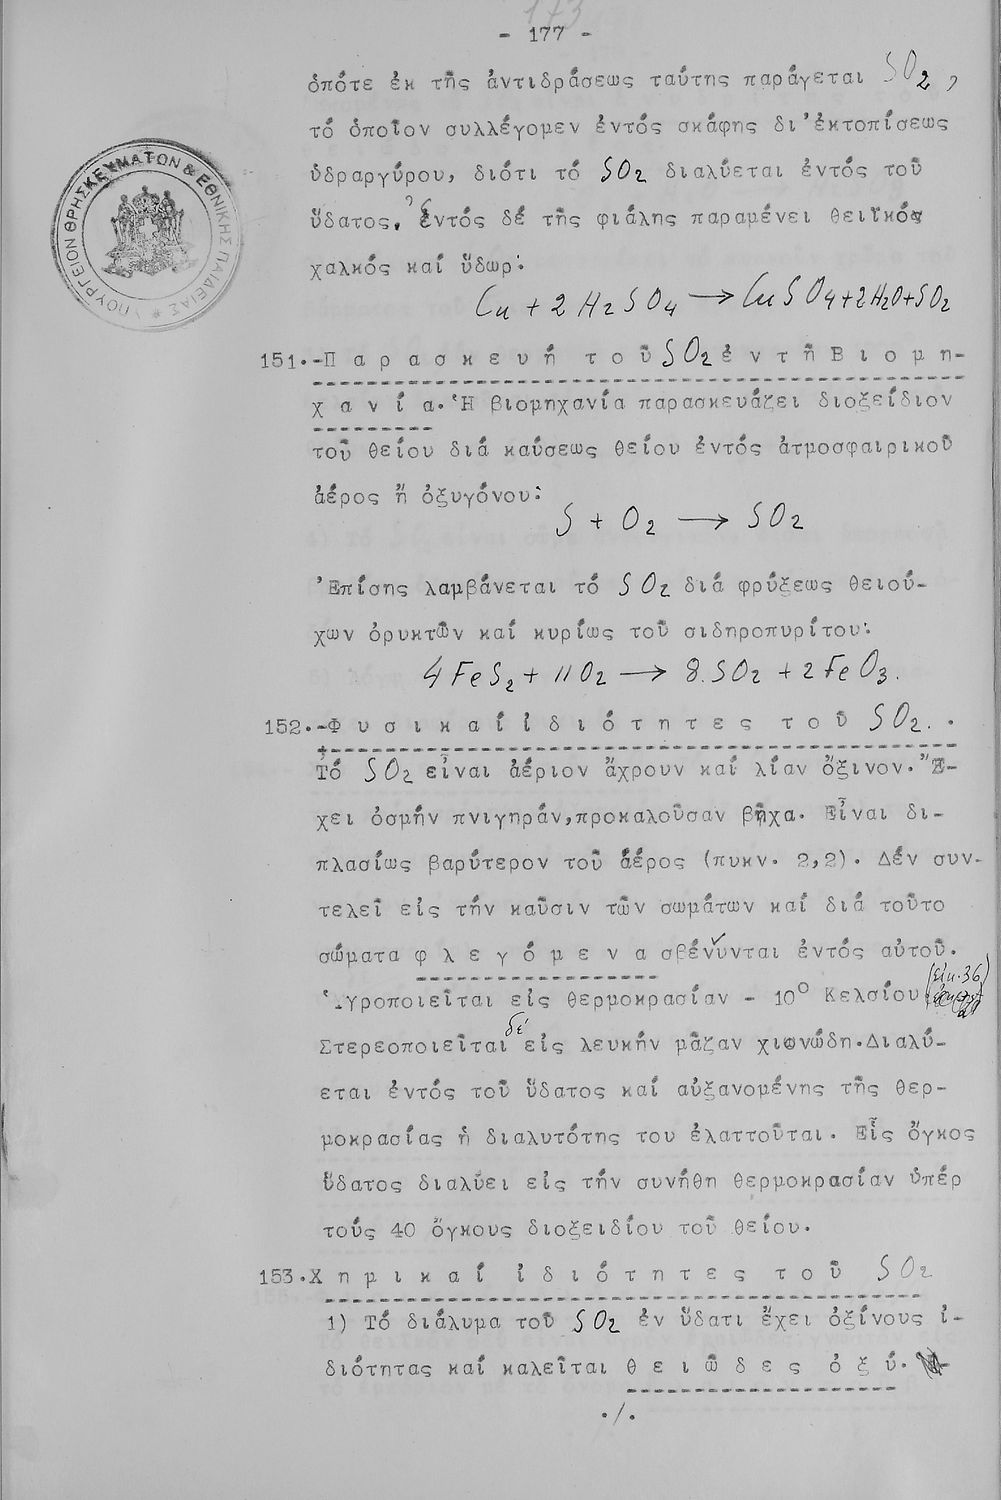 173
- 177 -
ὁπότε ἐκ τῆς ἀντιδράσεως ταύτης παράγεται SO₂,
τό ὁποῖον συλλέγομεν ἐντός σκάφης δι'ἐκτοπίσεως
ὑδραργύρου, διότι τό SO₂ διαλύεται ἐντός τοῦ
ὕδατος. Ἐντός δέ τῆς φιάλης παραμένει θειϊκός
χαλκός καί ὕδωρ:
Cu + 2 H₂SO₄ → CuSO₄+2H₂O+SO₂
151.-Π α ρ α σ κ ε υ ή τ ο ῦ SO₂ ἐ ν τ ῇ Β ι ο μ η-
χ α ν ί α. Ἡ βιομηχανία παρασκευάζει διοξείδιον
τοῦ θείου διά καύσεως θείου ἐντός ἀτμοσφαιρικοῦ
ἀέρος ἤ ὀξυγόνου:
S + O₂ → SO₂
Ἐπίσης λαμβάνεται τό SO₂ διά φρύξεως θειού-
χων ὀρυκτῶν καί κυρίως τοῦ σιδηροπυρίτου:
4 FeS₂ + 11 O₂ → 8. SO₂ + 2 Fe O₃.
152.-Φ υ σ ι κ α ί ἰ δ ι ό τ η τ ε ς τ ο ῦ SO₂. .
Τό SO₂ εἶναι ἀέριον ἄχρουν καί λίαν ὄξινον. Ἔ-
χει ὀσμήν πνιγηράν,προκαλοῦσαν βῆχα. Εἶναι δι-
πλασίως βαρύτερον τοῦ ἀέρος (πυκν. 2,2). Δέν συν-
τελεῖ εἰς τήν καῦσιν τῶν σωμάτων καί διά τοῦτο
σώματα φ λ ε γ ό μ ε ν α σβένυνται ἐντός αὐτοῦ.
Ὑγροποιεῖται εἰς θερμοκρασίαν - 10° Κελσίου (εἰκ. 36)
Στερεοποιεῖται δέ εἰς λευκήν μᾶζαν χιονώδη.Διαλύ-
εται ἐντός τοῦ ὕδατος καί αὐξανομένης τῆς θερ-
μοκρασίας ἡ διαλυτότης του ἐλαττοῦται. Εἷς ὄγκος
ὕδατος διαλύει εἰς τήν συνήθη θερμοκρασίαν ὑπέρ
τούς 40 ὄγκους διοξειδίου τοῦ θείου.
153.Χ η μ ι κ α ί ἰ δ ι ό τ η τ ε ς τ ο ῦ SO₂
1) Τό διάλυμα τοῦ SO₂ ἐν ὕδατι ἔχει ὀξίνους ἰ-
διότητας καί καλεῖται θ ε ι ῶ δ ε ς ὀ ξ ύ.
./.
ΥΠΟΥΡΓΕΙΟΝ ΘΡΗΣΚΕΥΜΑΤΩΝ & ΕΘΝΙΚΗΣ ΠΑΙΔΕΙΑΣ *